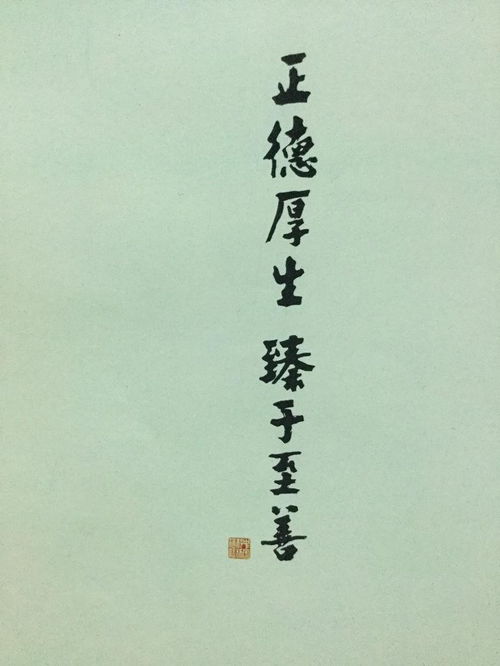 正德厚生 臻于至善